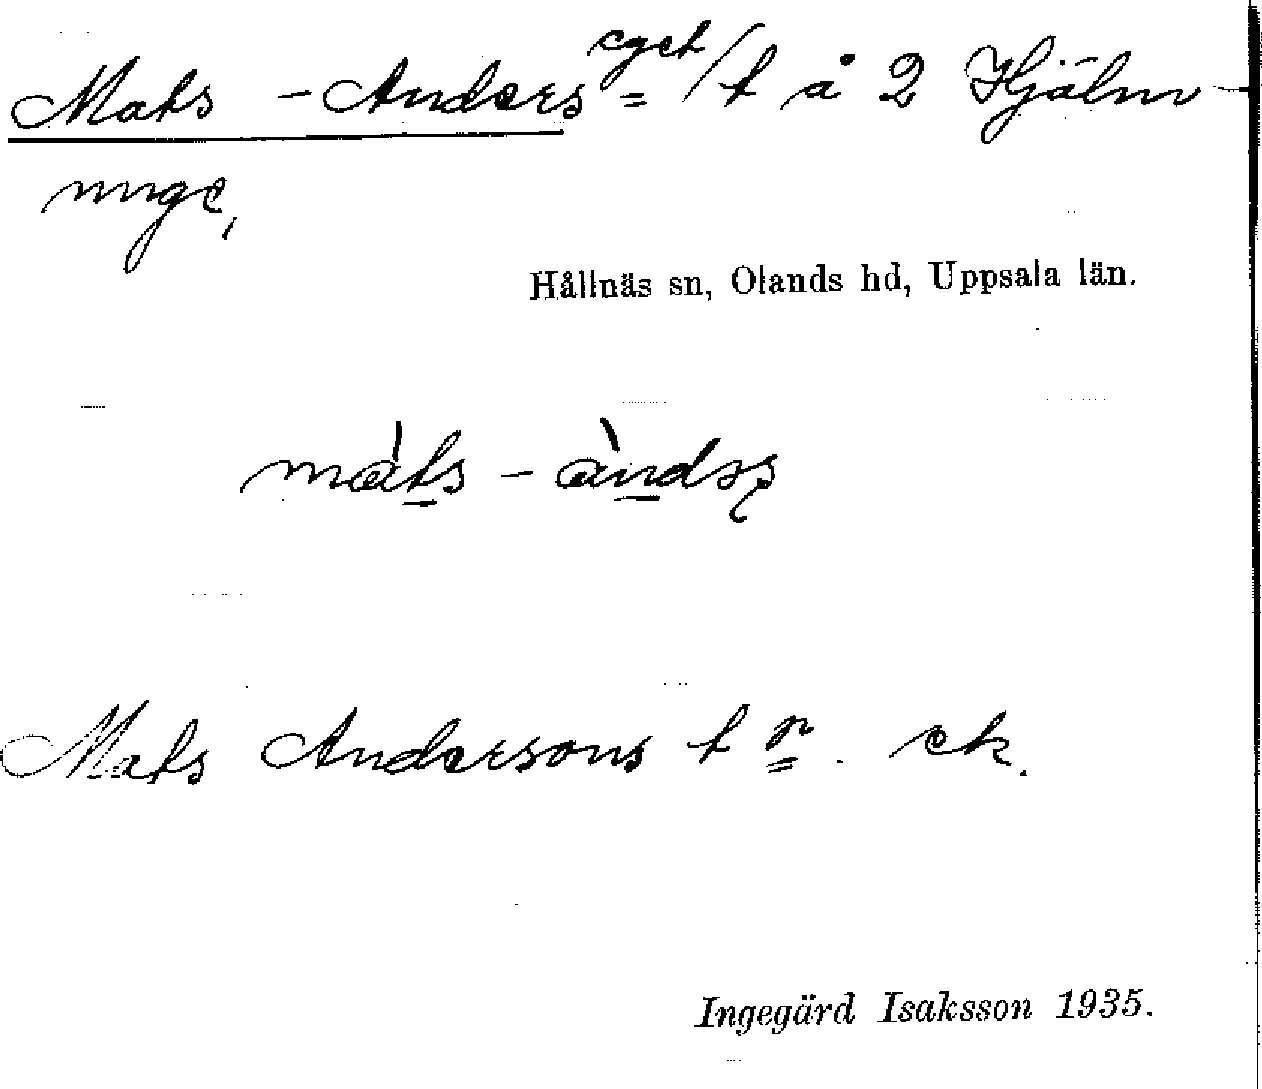 Mats - Anders = eget / t å 2 Hjälm-
unge,
Hållnäs sn, Olands hd, Uppsala län.
màts - àndəş
Mats Andersons t n. ek.
Ingegärd Isaksson 1935.